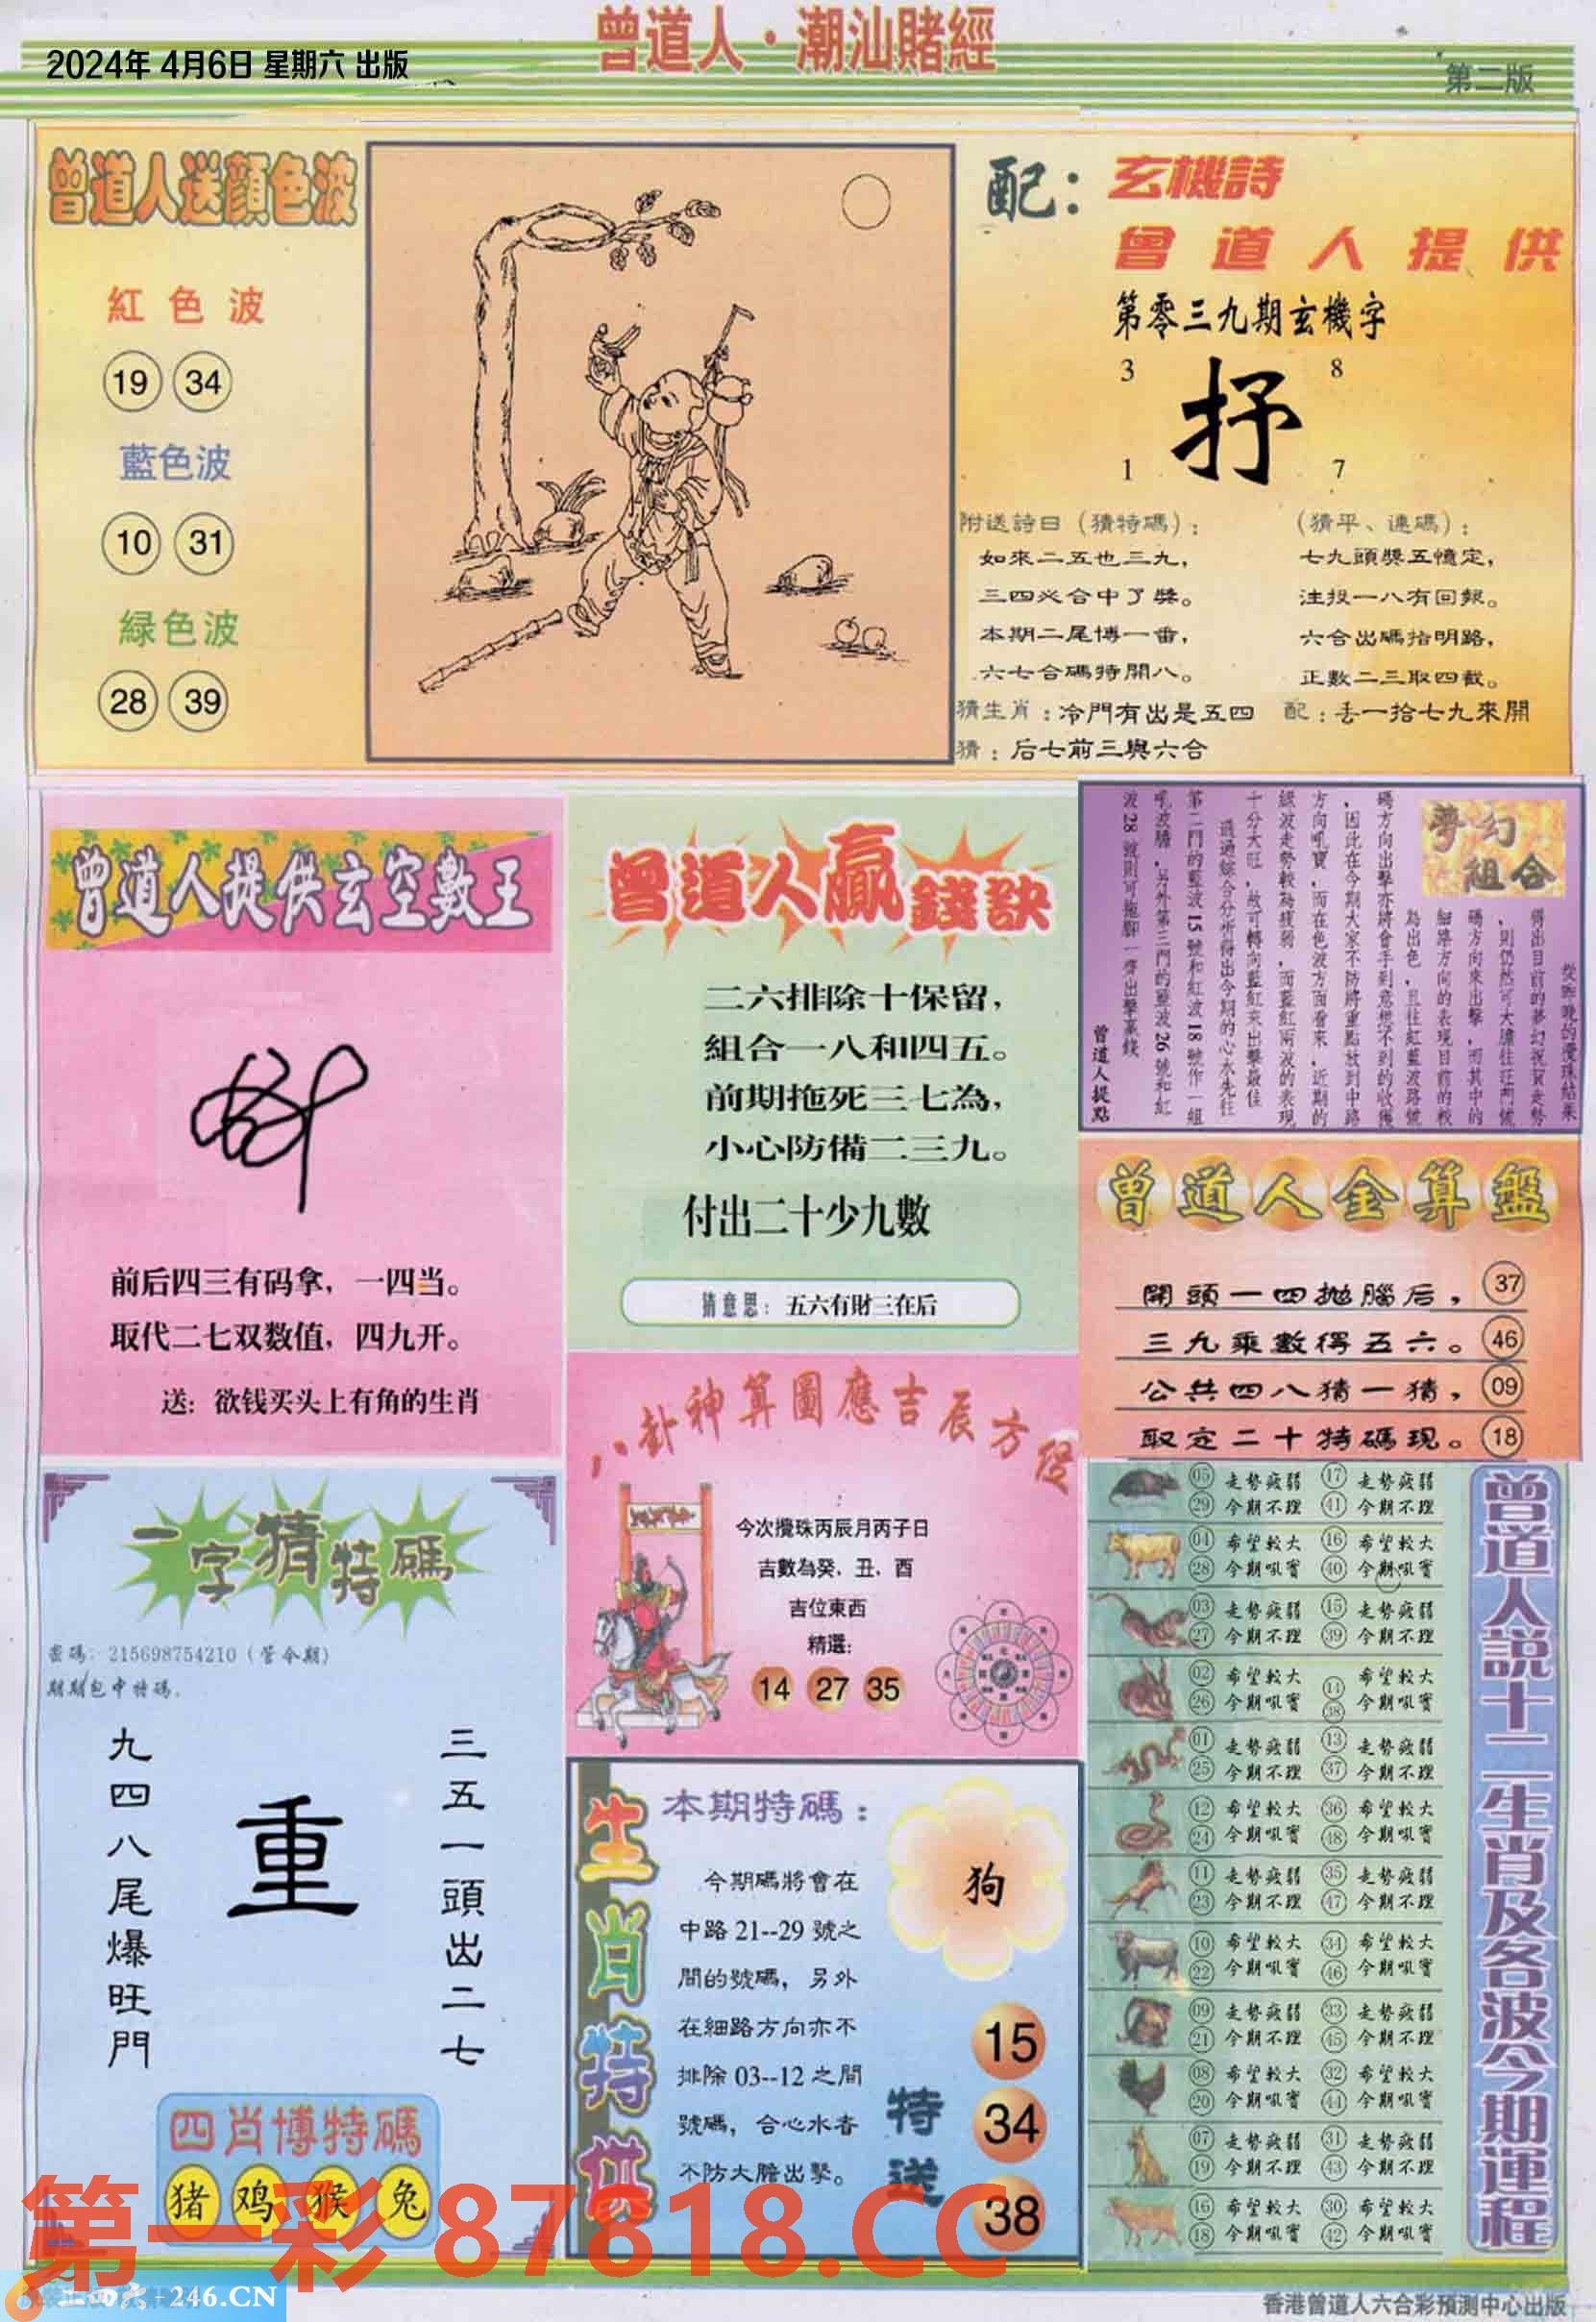 曾道人·潮汕賭經
2024年 4月6日 星期六 出版
第二版
曾道人送顔色波
紅色波
19 34
藍色波
10 31
緑色波
28 39
配：玄機詩
曾道人提供
第零三九期玄機字
3 8
抒
1 7
附送詩曰（猜特碼）：
如來二五也三九，
三四必合中了獎。
本期二尾博一番，
六七合碼特開八。
（猜平、連碼）：
七九頭獎五憶定，
注投一八有回報。
六合出碼指明路，
正數二三取四截。
猜生肖：冷門有出是五四
配：丢一拾七九來開
猜：后七前三與六合
曾道人提供玄空數王
前后四三有码拿，一四当。
取代二七双数值，四九开。
送：欲钱买头上有角的生肖
曾道人贏錢訣
二六排除十保留，
組合一八和四五。
前期拖死三七為，
小心防備二三九。
付出二十少九數
猜意思：五六有財三在后
夢幻組合
從昨晚的攪珠結果
得出目前的夢幻祝賀走勢
碼方向來出擊，而其中的
細路方向的表現目前的較
為出色，且往紅藍波路
碼方向出擊亦將會手到意想不到的收獲
，因此在今期大家不防將重點放到中路
方向吼寶，而在色波方面看來，近期的
緑波走勢較為疲弱，而藍紅兩波的表現
十分大旺，故可轉向藍紅來出擊最佳
通過綜合分析得出今期的心水先往
第二門的藍波15號和紅波18號作一組
吼波膽，另外第三門的藍波26號和紅
波28號則可拖脚一齊出擊贏錢
曾道人提點
曾道人金算盤
開頭一四拋腦后， 37
三九乘數得五六。 46
公共四八猜一猜， 09
取定二十特碼現。 18
八卦神算圖應吉辰方從
今次攪珠丙辰月丙子日
吉數為癸．丑．酉
吉位東西
精選：
14 27 35
一字猜特碼
密碼：215698754210（管令期）
期期包中特碼．
九四八尾爆旺門
重
三五一頭出二七
四肖博特碼
猪 鸡 猴 兔
生肖特供
本期特碼：
今期碼將會在
中路21--29號之
間的號碼，另外
在細路方向亦不
排除03--12之間
號碼，合心水者
不防大膽出擊。
狗
特送
15
34
38
曾道人説十二生肖及各波今期運程
05 走勢疲弱 17 走勢疲弱
29 今期不理 41 今期不理
04 希望較大 16 希望較大
28 今期吼實 40 今期吼實
03 走勢疲弱 15 走勢疲弱
27 今期不理 39 今期不理
02 希望較大 14 希望較大
26 今期吼實 38 今期吼實
01 走勢疲弱 13 走勢疲弱
25 今期不理 37 今期不理
12 希望較大 36 希望較大
24 今期吼實 48 今期吼實
11 走勢疲弱 35 走勢疲弱
23 今期不理 47 今期不理
10 希望較大 34 希望較大
22 今期吼實 46 今期吼實
09 走勢疲弱 33 走勢疲弱
21 今期不理 45 今期不理
08 希望較大 32 希望較大
20 今期吼實 44 今期吼實
07 走勢疲弱 31 走勢疲弱
19 今期不理 43 今期不理
16 希望較大 30 希望較大
18 今期吼實 42 今期吼實
第一彩 87818.CC
二四六-246.CN
香港曾道人六合彩預測中心出版